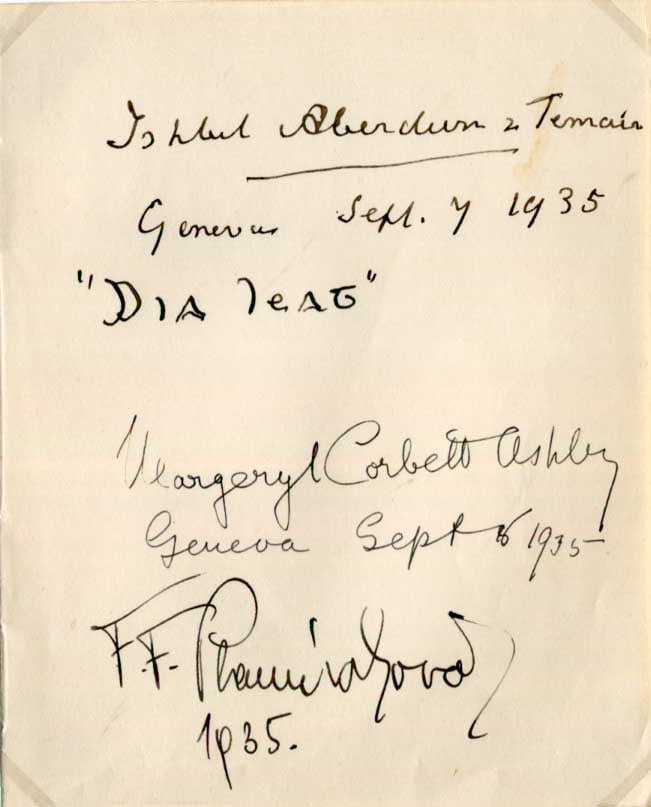 Ishbel Aberdeen & Temair
Geneva Sept. 7 1935
"Dia leat"
Margery I Corbett Ashby
Geneva Sept 6 1935
F. F. Plamínková
1935.